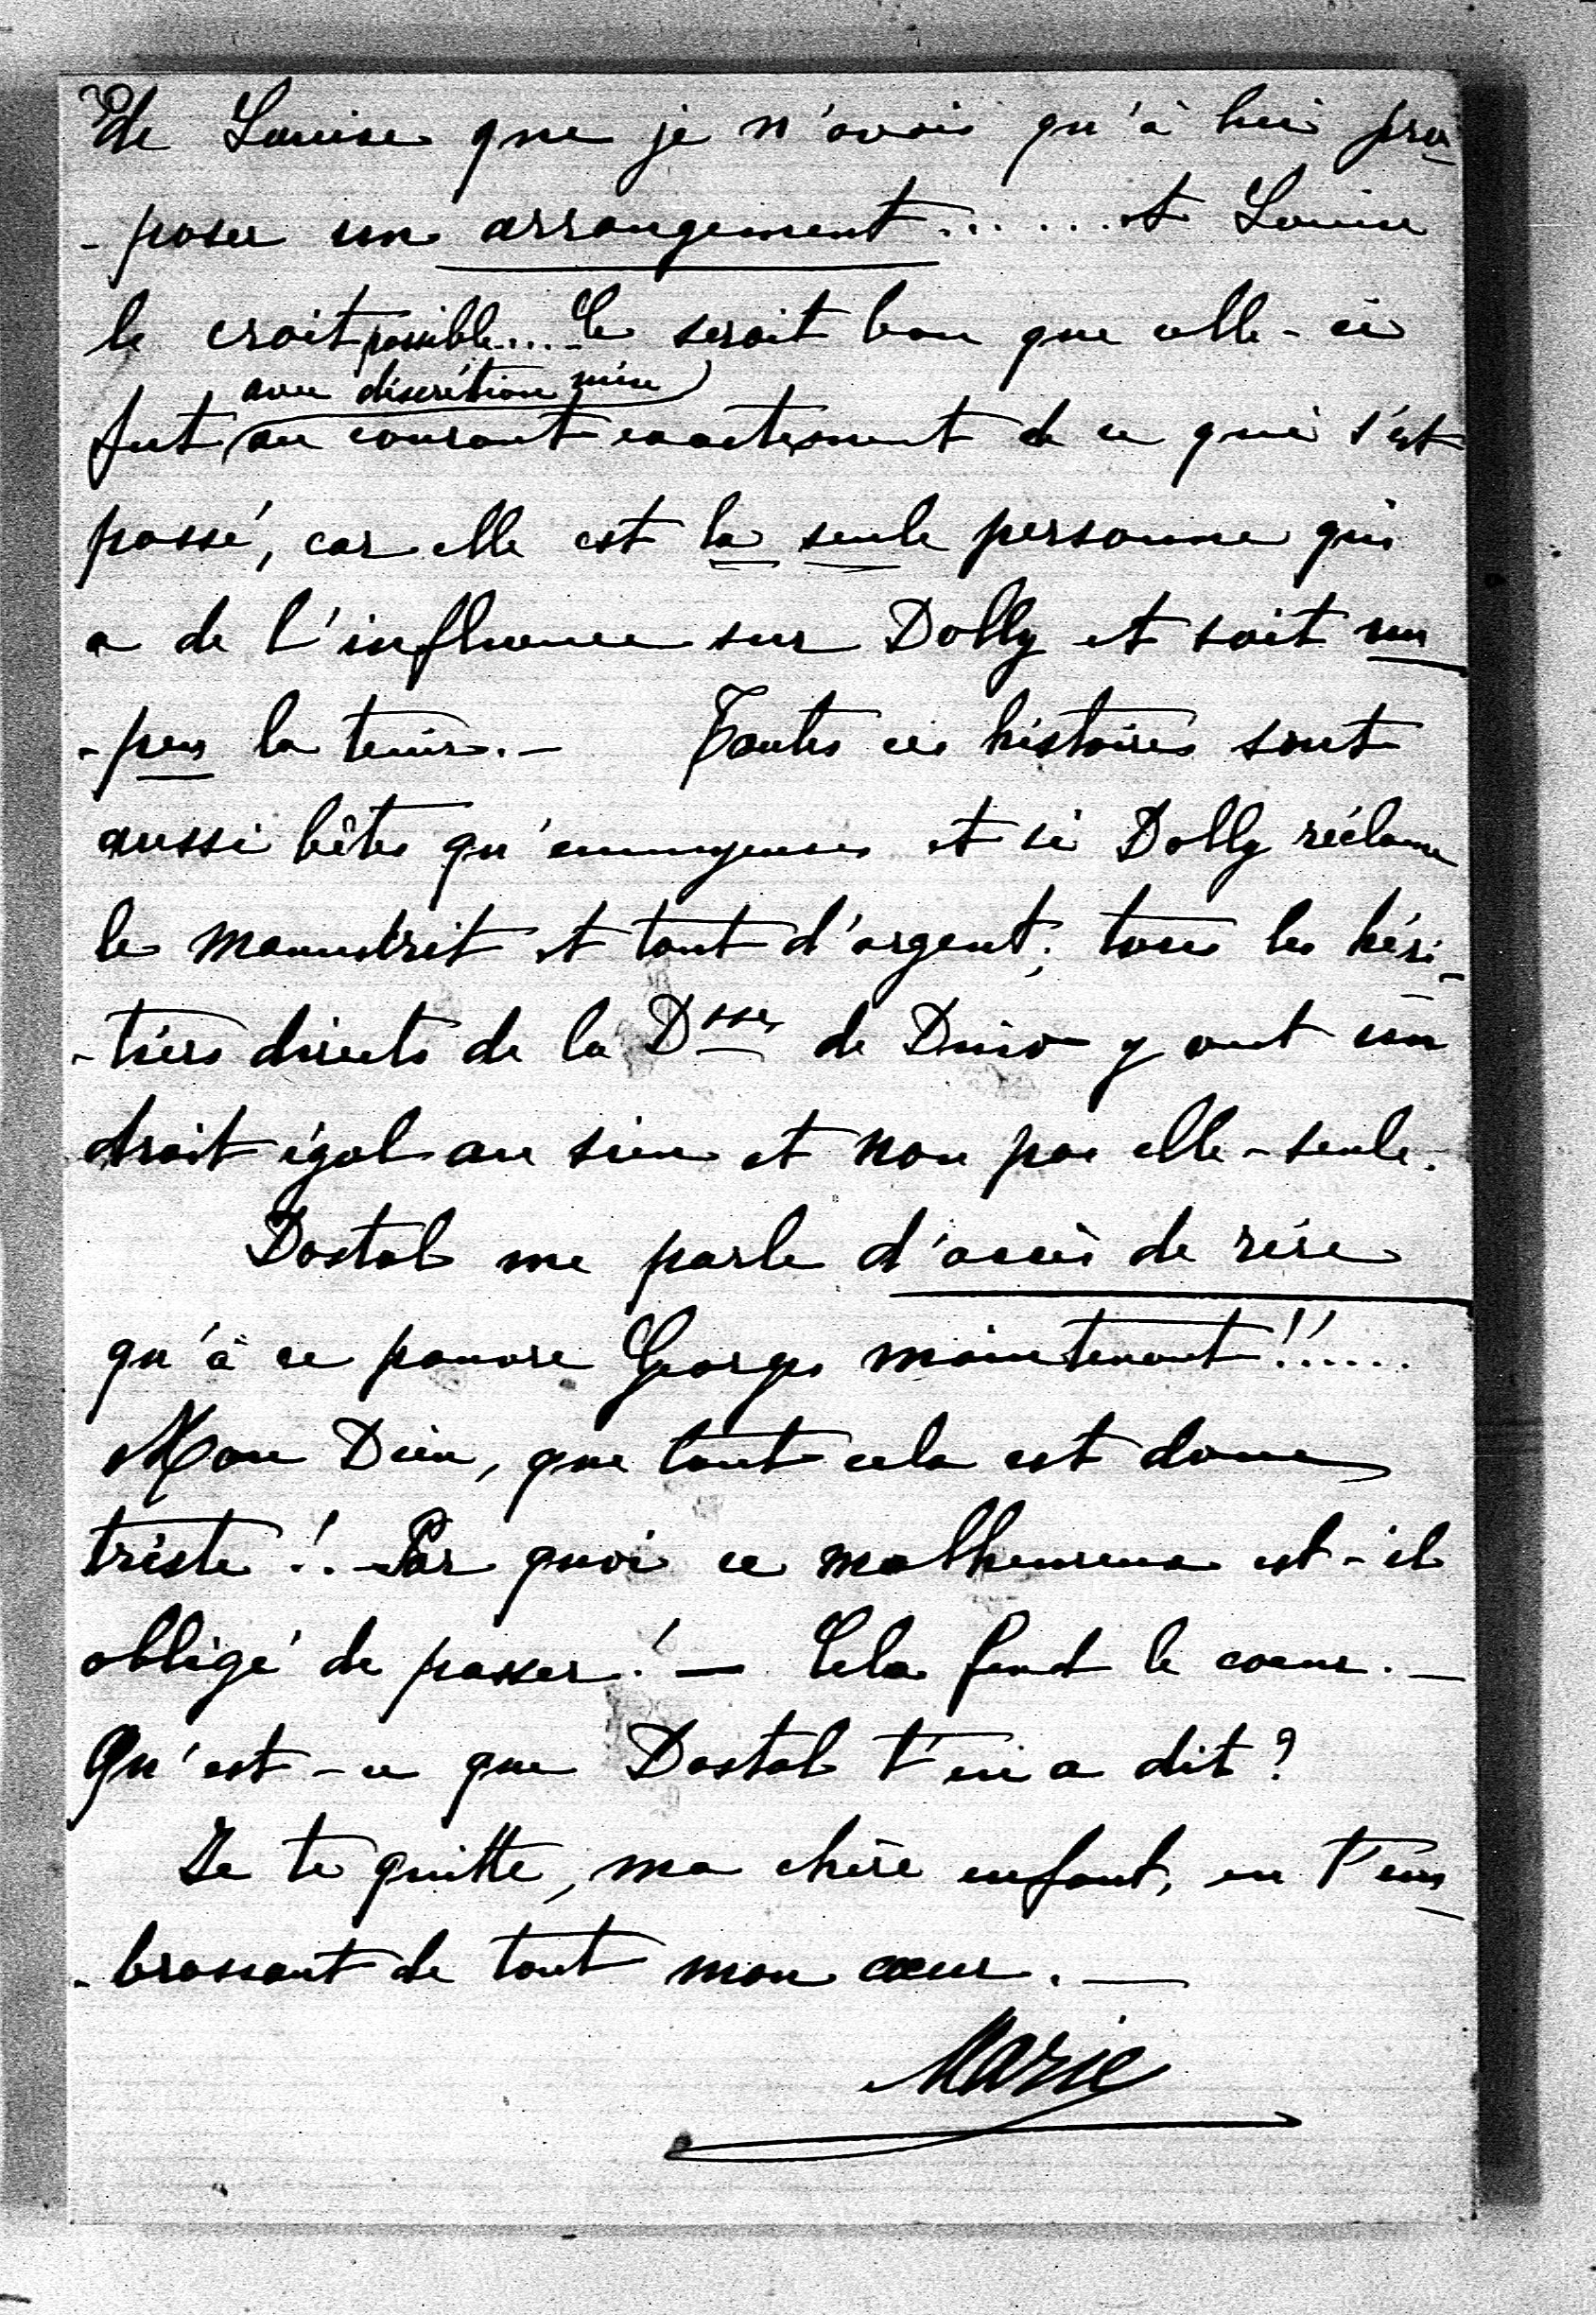 de Louise que je n'avais qu'à lui pro
-poser un arrangement...... et Louise
le croit possible.... Ce serait bon que celle-ci
avec discrétion mise
fut au courant exactement de ce qui s'est
passé, car elle est la seule personne qui
a de l'influence sur Dolly et sait un
-peu la tenir. - Toutes ces histoires sont
aussi bêtes qu'ennuyeuses et si Dolly réclame
le manuscrit et tant d'argent; tous les héri-
-tiers directs de la Dsse de Dino y ont un
droit égal au sien et non pas elle-seule.
Dostal me parle d'accès de rire
qu'à ce pauvre Georges maintenant!!......
Mon Dieu, que tout cela est donc
triste!. - Par quoi ce malheureux est-il
obligé de passer! - Cela fend le coeur. -
Qu'est-ce que Dostal t'en a dit?
Je te quitte, ma chère enfant, en t'em
-brassant de tout mon coeur. -
Marie